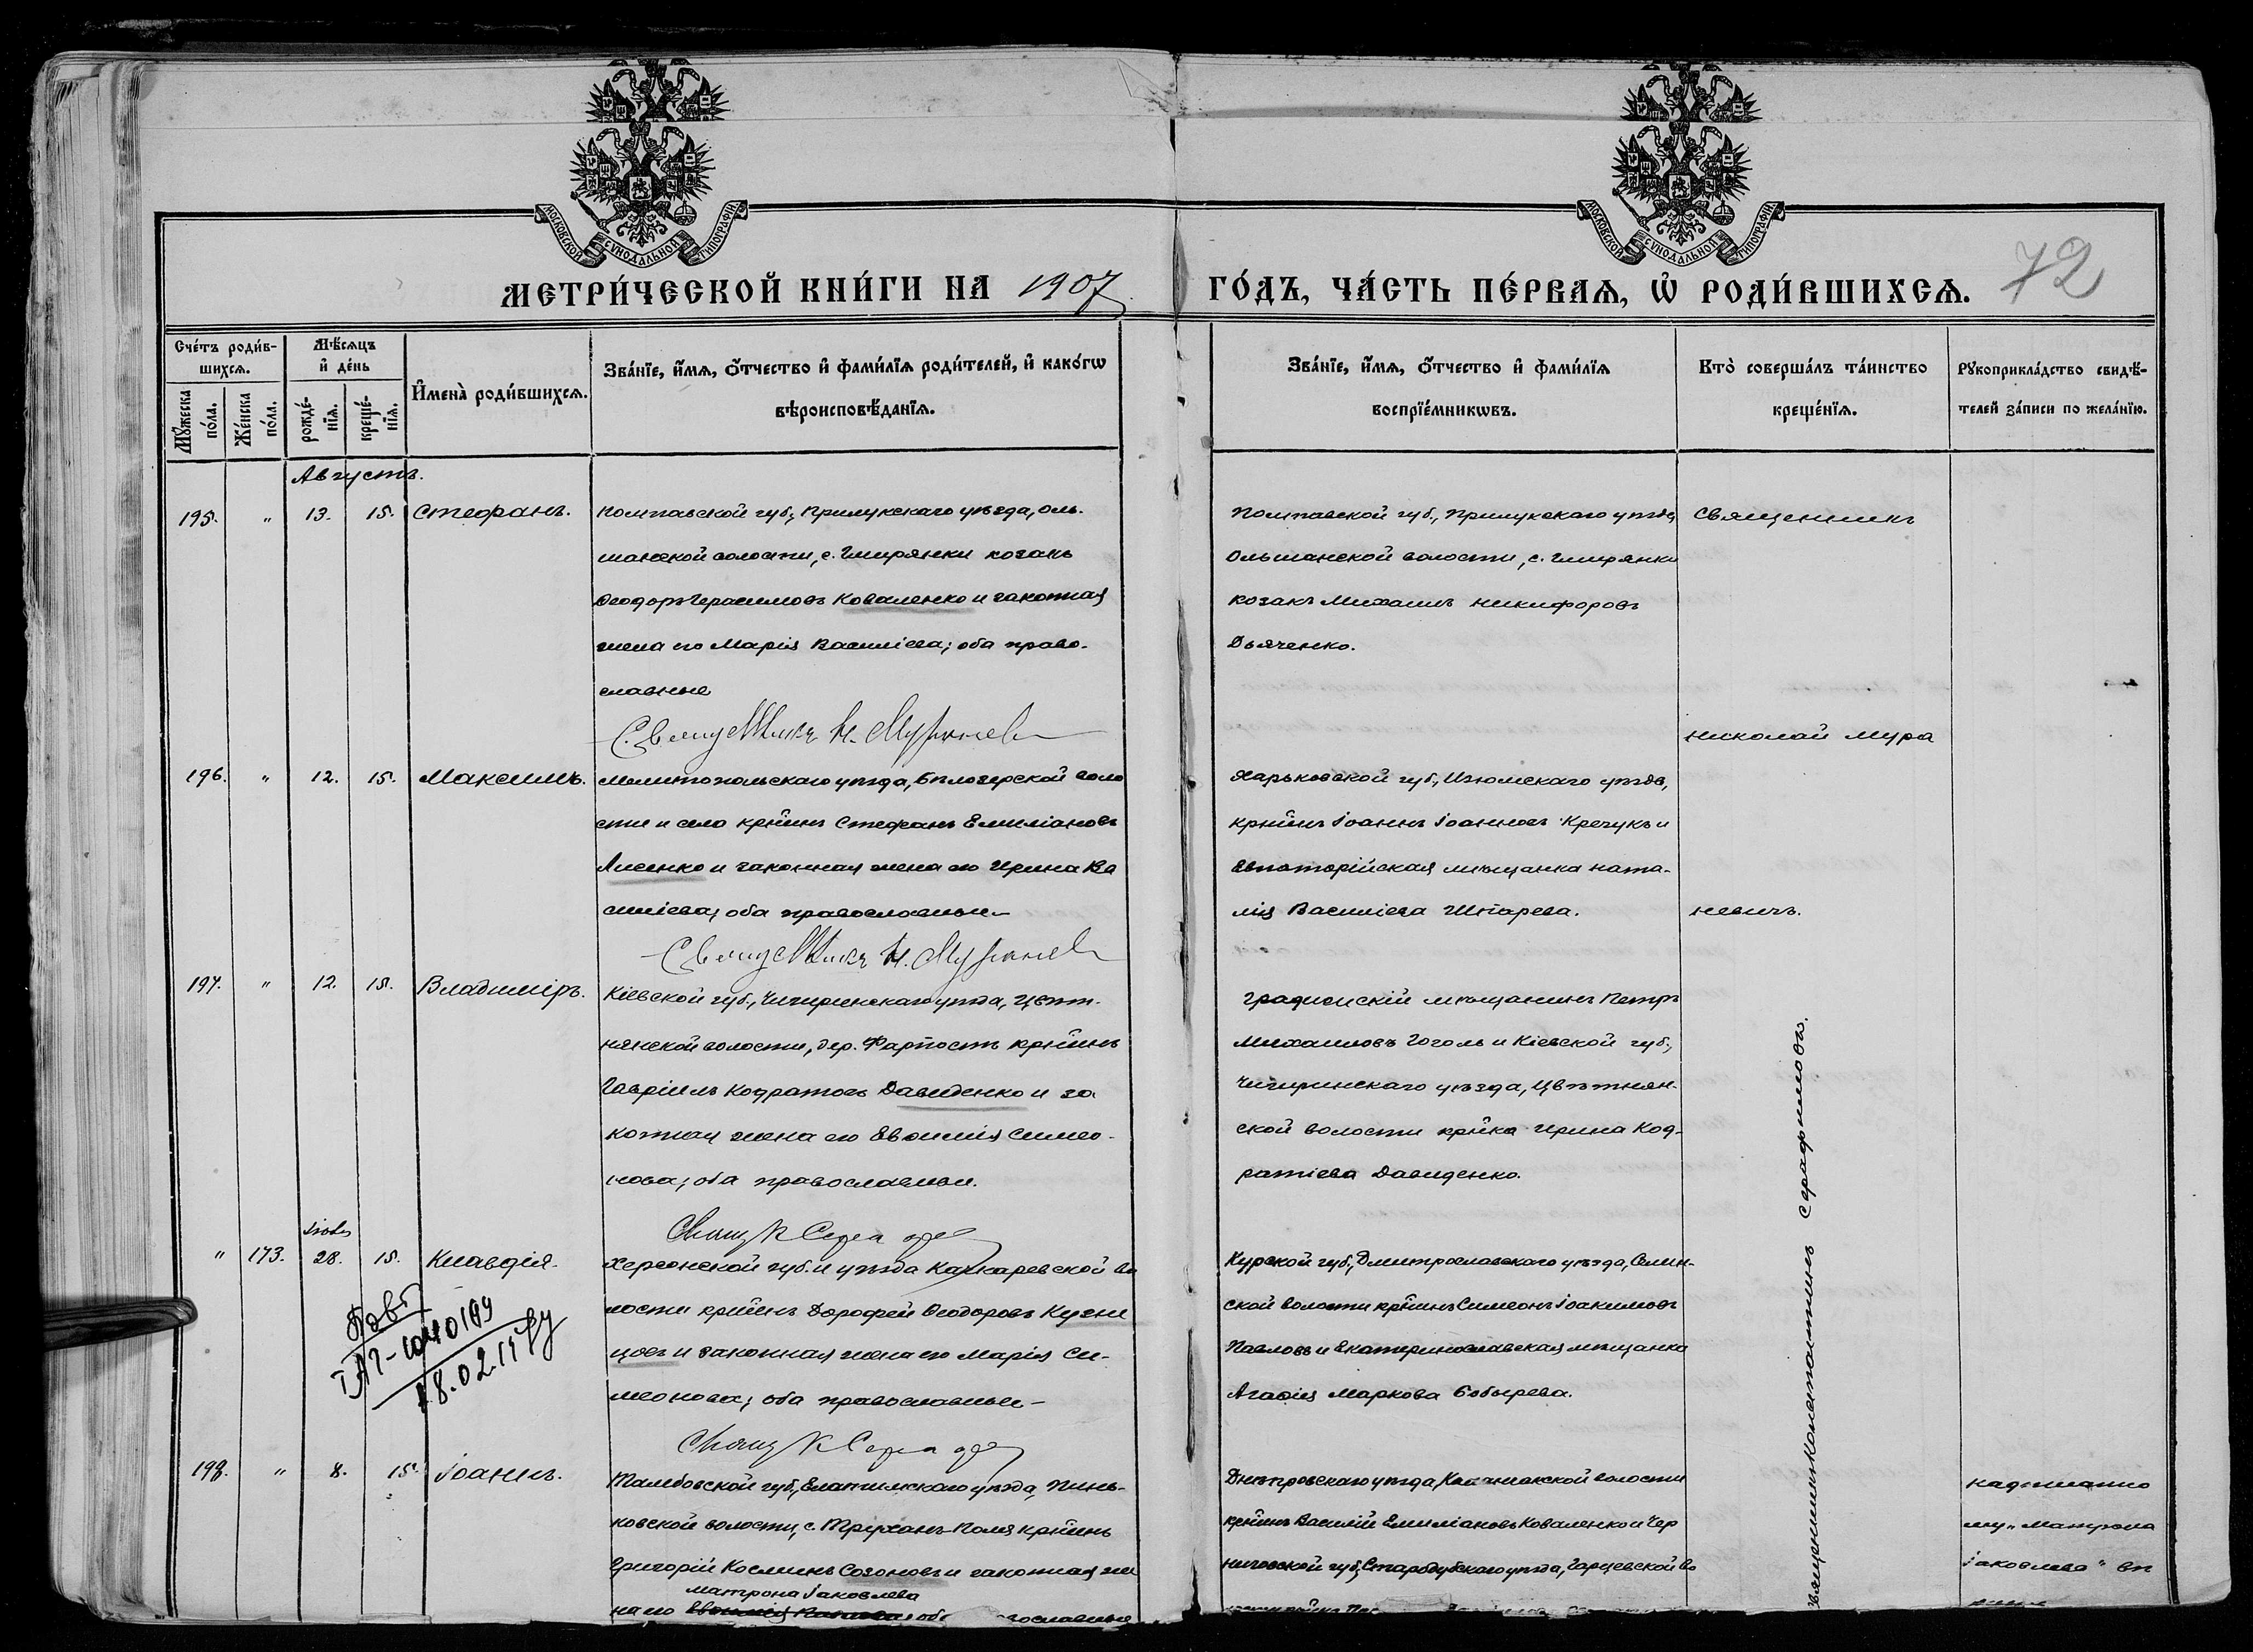 МОСКОВСКОЙ СѴНОДАЛЬНОЙ ТИПОГРАФІИ
МОСКОВСКОЙ СѴНОДАЛЬНОЙ ТИПОГРАФІИ
МЕТРИ́ЧЕСКОЙ КНИ́ГИ НА 1907 ГО́ДЪ, ЧА́СТЬ ПЕ́РВАЯ, Ѡ҆ РОДИ́ВШИХСЯ.
72
Сче́тъ роди́в-
шихся.
Мѣ́сяцъ
и҆ де́нь
Мꙋ́жеска по́ла.
Же́нска по́ла.
рожде́-
нїя.
креще́-
нїя.
И҆мена̀ роди́вшихся.
Зва́нїе, и҆́мя, ѻ҆́тчество и҆ фами́лїя роди́телей, и҆ како́гѡ
вѣроисповѣ́данїя.
Зва́нїе, и҆́мя, ѻ҆́тчество и҆ фами́лїя
воспрїе́мникѡвъ.
Кто̀ соверша́лъ та́инство
креще́нїя.
Рꙋкоприкла́дство свидѣ́-
телей за́писи по жела́нїю.
Августъ.
195. " 13. 15. Стефанъ.
Полтавской губ., Прилукскаго уѣзда, Оль-
шанской волости, с. Гмирянки козакъ
Ѳеодоръ Герасимовъ Коваленко и законная
жена его Марія Василіева; оба право-
славные
Священникъ Н. Муранев
Полтавской губ., Прилукскаго уѣзда,
Ольшанской волости, с. Гмирянки
козакъ Михаилъ Никифоровъ
Дьяченко.
Священникъ
Николай Мура
невичъ.
196. " 12. 15. Максимъ.
Мелитопольскаго уѣзда, Бѣлозерской воло
сти и села кр-нинъ Стефанъ Емиліановъ
Лисенко и законная жена его Ирина Ва
силіева; оба православные
Священникъ Н. Муранев
Харьковской губ., Изюмскаго уѣзда,
кр-нинъ Іоаннъ Іоанновъ Кречукъ и
Евпаторійская мѣщанка Ната-
лія Василіева
197. " 12. 15. Владиміръ.
Кіевской губ., Чигиринскаго уѣзда, Цвѣт-
нянской волости, дер. кр-нинъ
Гавріилъ Кодратовъ Давиденко и за
конная жена его Евѳимія Симео-
нова; оба православные.
Свящ К Сера
мѣщанинъ Петръ
Михаиловъ Гоголь и Кіевской губ.,
Чигиринскаго уѣзда, Цвѣтнян-
ской волости кр-нка Ирина Код-
ратіева Давиденко.
Священникъ Константинъ Серафимовъ.
" 173. Іюля 28. 15. Клавдія.
Херсонской губ. и уѣзда во
лости кр-нинъ Дорофей Ѳеодоровъ Кузне
цовъ и законная жена его Марія Си-
меонова; оба православные
Свящ К Сера
Курской губ., уѣзда,
ской волости кр-нинъ Симеонъ Іоакимовъ
Павловъ и Екатеринославская мѣщанка
Агаѳія Маркова Бобырева.
18.02.15
198. " 8. 15. Іоаннъ.
Тамбовской губ., Елатомскаго уѣзда, Пинь-
ковской волости, с. кр-нинъ
Григорій Косминъ Созоновъ и законная же
Матрона Іаковлева
на его
Днѣпровскаго уѣзда, волости
кр-нинъ Василій Емиліановъ Коваленко и Чер
ниговской губ., Стародубскаго уѣзда, во
надписанно
му "Матрона
Іаковлева"